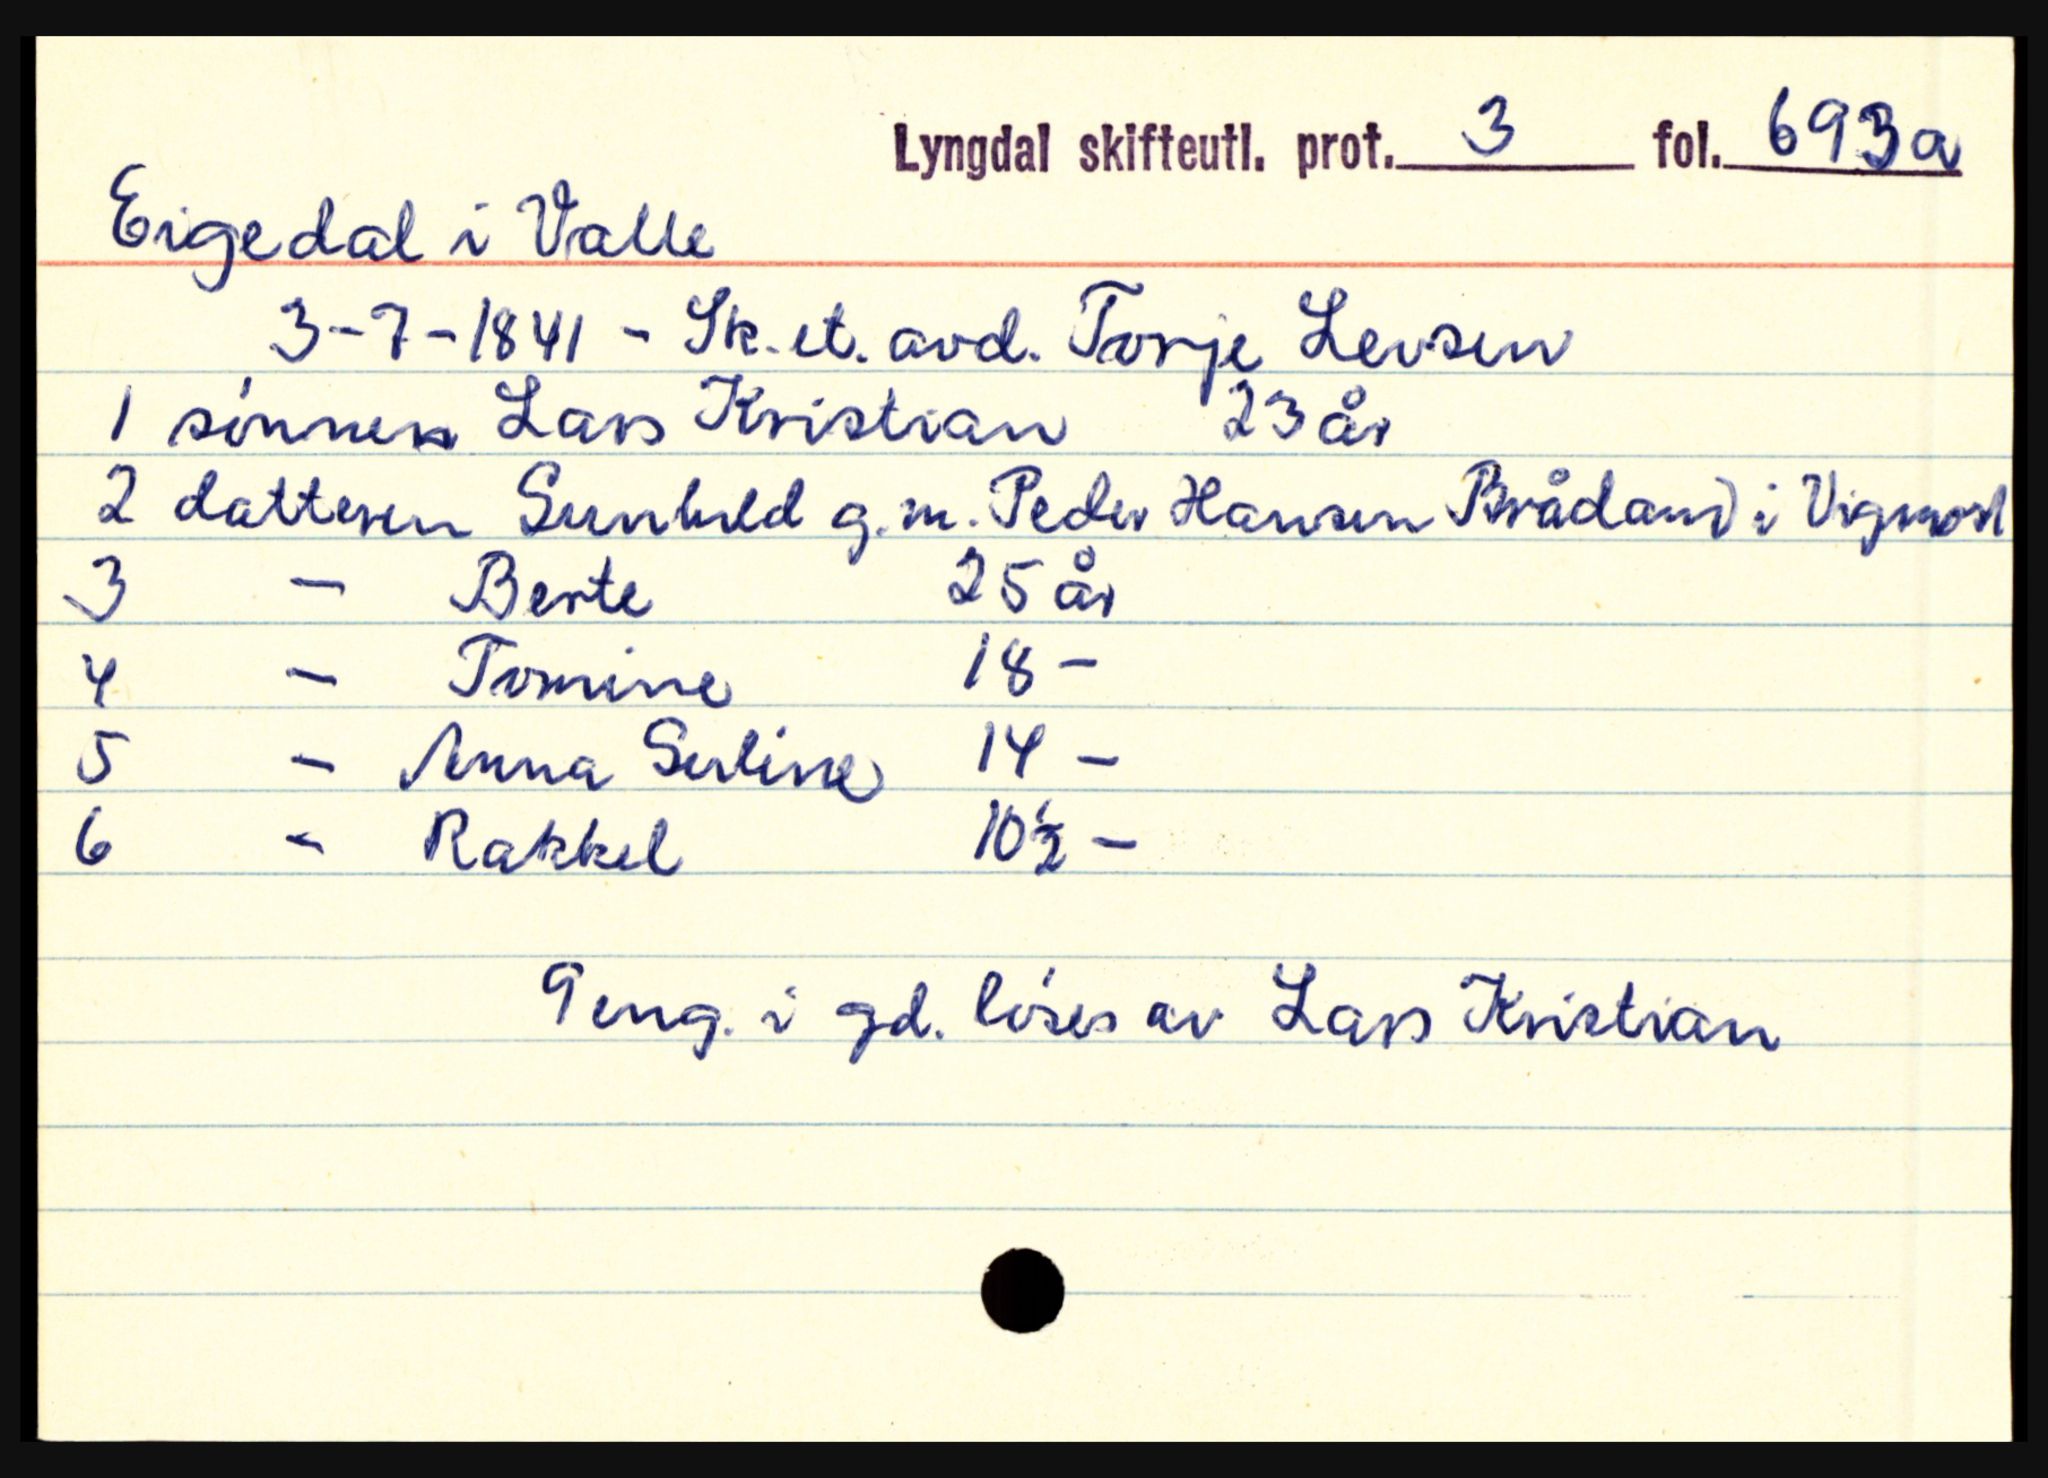 Lyngdal skifteutl. prot. 3 fol. 693a
Eigedal i Valle
3-7-1841 - Sk. et. avd. Torje Levsen
1 sønnen Lars Kristian 23 år
2 datteren Gunhild g.m. Peder Hansen Brådland i Vigmost
3 - Berte 25 år
4 - Tomine 18 -
5 - Anna Seline 14 -
6 - Rakkel 10½ -
9 eng. i gd. løses av Lars Kristian